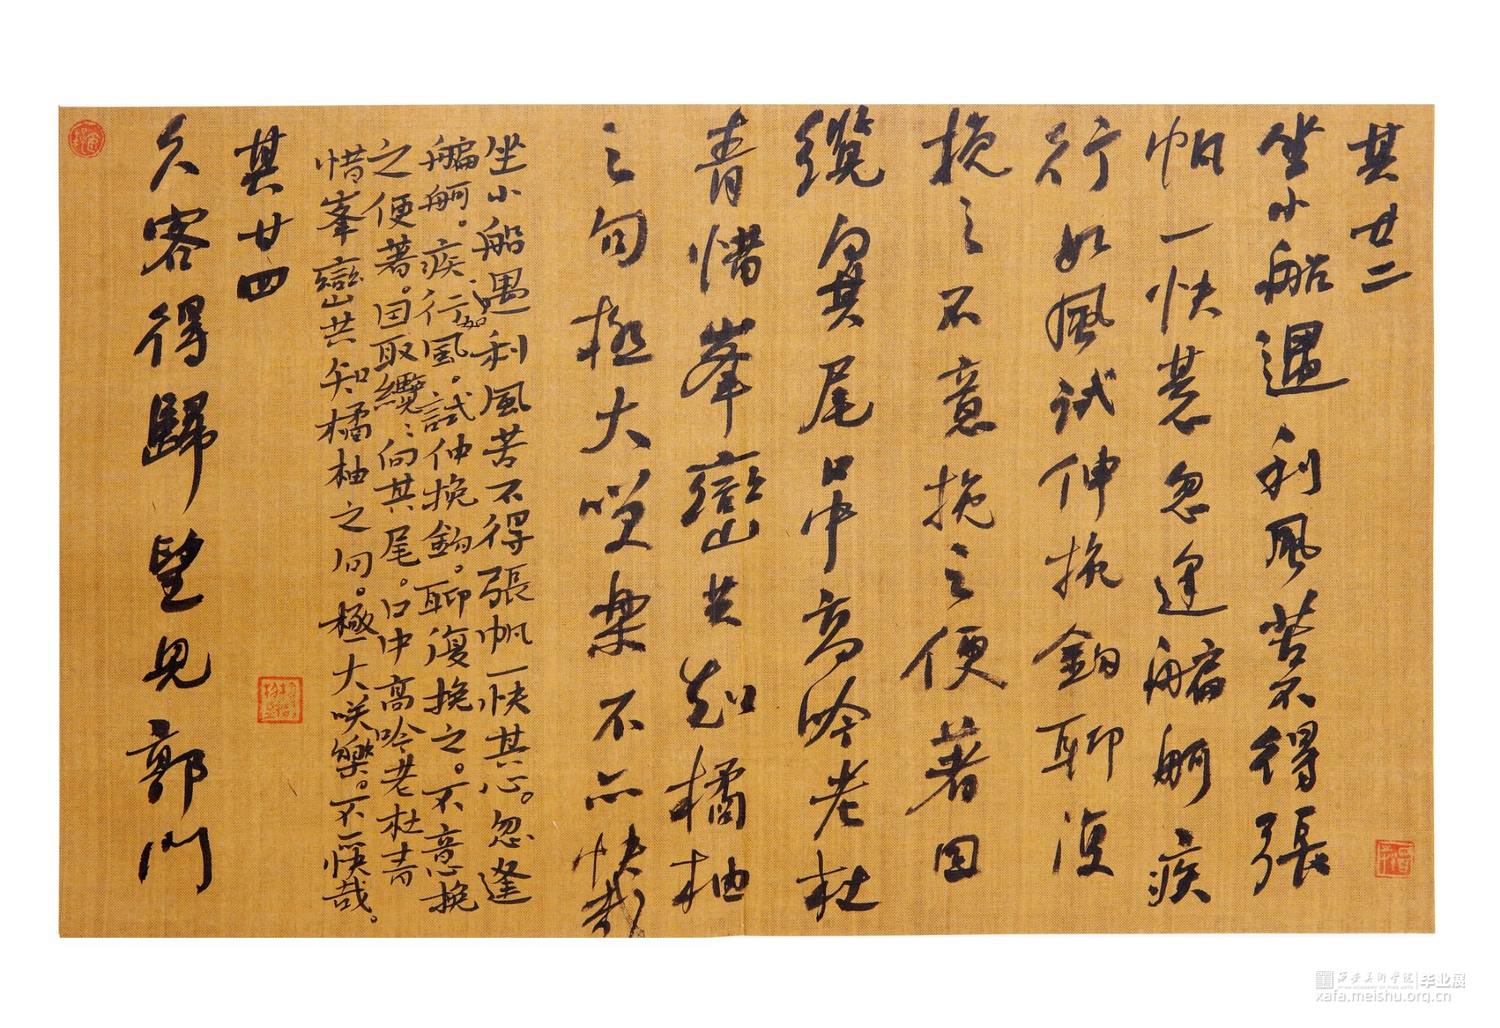 其廿二
坐小船遇利風苦不得張
帆一快其忽逢艑舸疾
行如風試伸挽鉤聊復
挽之不意挽之便著因
纜與其尾口中高吟老杜
青惜峯巒共知橘柚
之句極大咲樂不亦快哉
坐小船遇利風苦不得張帆一快其心。忽逢
艑舸。疾行如風。試伸挽鉤。聊復挽之。不意挽
之便著。因取纜、向其尾。口中高吟老杜青
惜峯巒共知橘柚之句。極大咲樂。不亦快哉。
其廿四
久客得歸望見郭門
西安美術學院 毕业展
xafa.meishu.org.cn